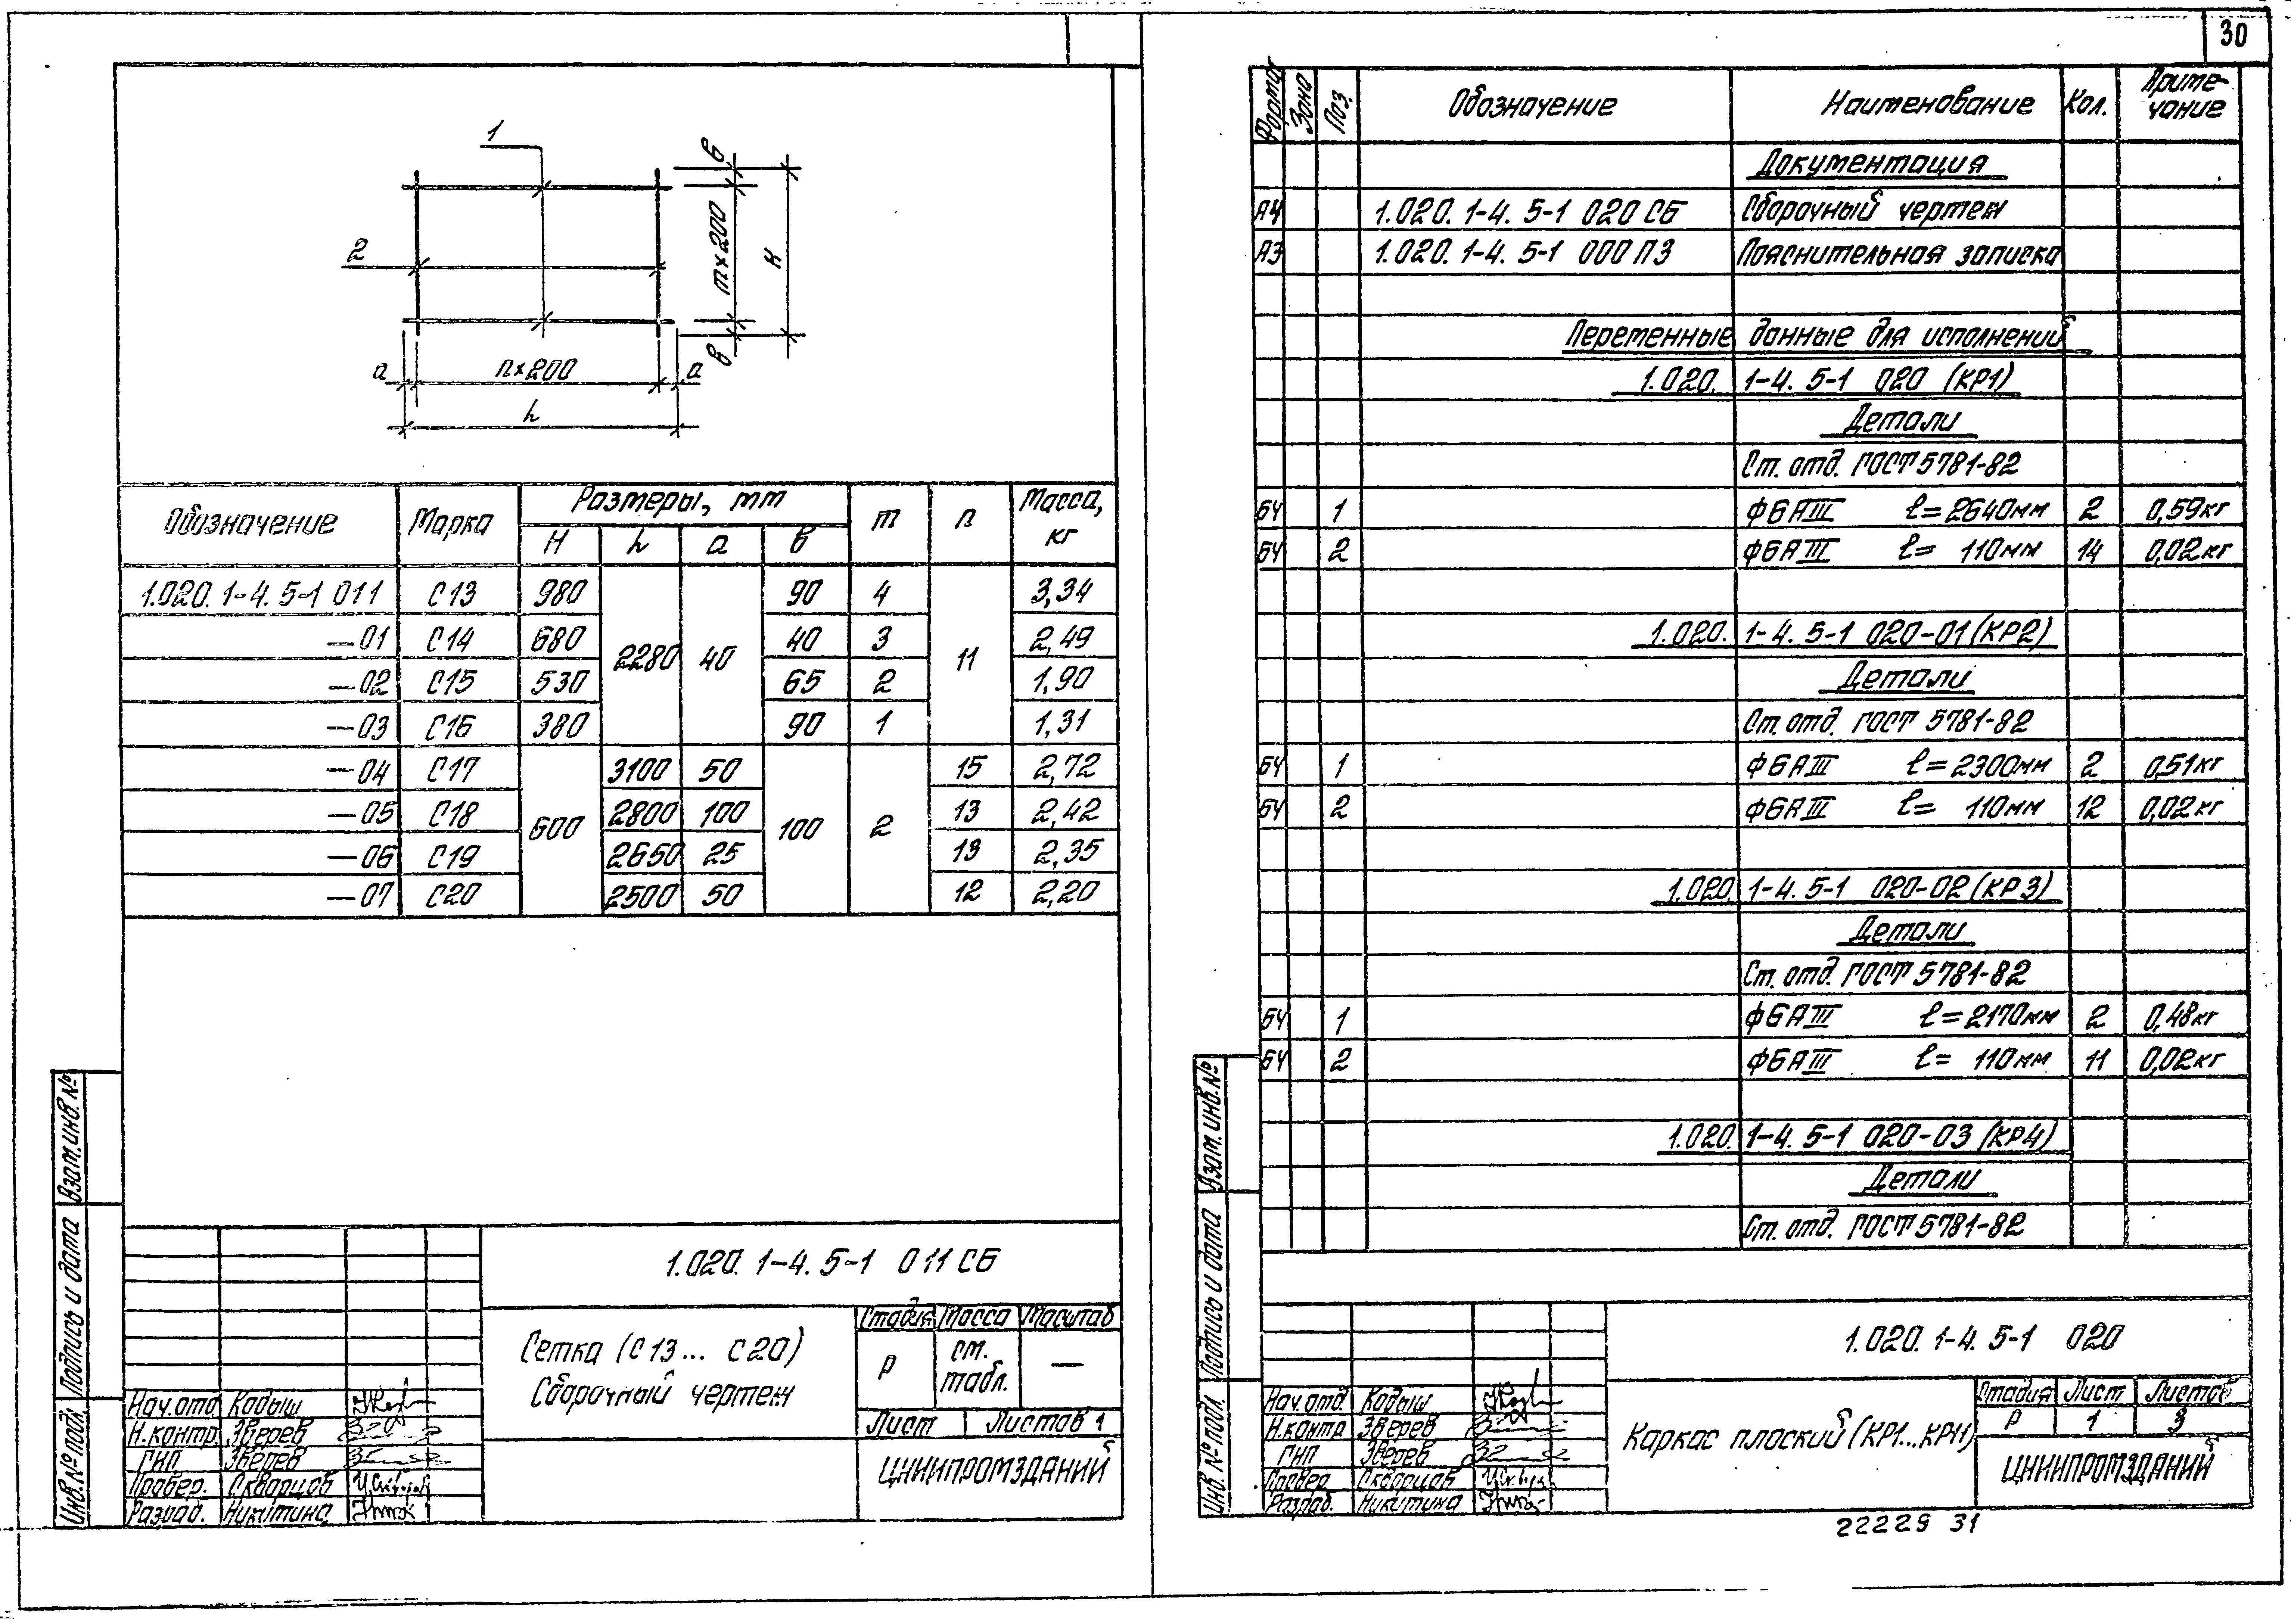 30
1
2
в
m×200
H
в
a
n×200
a
h
Обозначение Марка Размеры, мм m n Масса, кг
H h a в
1.020.1-4.5-1 011 С13 980 2280 40 90 4 11 3,34
—01 С14 680 40 3 2,49
—02 С15 530 65 2 1,90
—03 С16 380 90 1 1,31
—04 С17 600 3100 50 100 2 15 2,72
—05 С18 2800 100 13 2,42
—06 С19 2650 25 13 2,35
—07 С20 2500 50 12 2,20
Инв.№ подл. Подпись и дата Взам.инв.№
1.020.1-4.5-1 011 СБ
Сетка (С13... С20)
Сборочный чертеж
Стадия Масса Масштаб
Р см. табл. —
Лист Листов 1
ЦНИИПРОМЗДАНИЙ
Нач.отд Кадыш
Н.контр. Зверев
ГИП Зверев
Провер. Скварцов
Разраб. Никитина
Формат Зона Поз. Обозначение Наименование Кол. Приме-чание
Документация
А4 1.020.1-4.5-1 020 СБ Сборочный чертеж
А3 1.020.1-4.5-1 000 ПЗ Пояснительная записка
Переменные данные для исполнений
1.020.1-4.5-1 020 (КР1)
Детали
Ст. отд. ГОСТ 5781-82
БЧ 1 Ф6АIII ℓ=2640мм 2 0,59кг
БЧ 2 Ф6АIII ℓ= 110мм 14 0,02кг
1.020.1-4.5-1 020-01 (КР2)
Детали
Ст. отд. ГОСТ 5781-82
БЧ 1 Ф6АIII ℓ=2300мм 2 0,51кг
БЧ 2 Ф6АIII ℓ= 110мм 12 0,02кг
1.020.1-4.5-1 020-02 (КР3)
Детали
Ст. отд. ГОСТ 5781-82
БЧ 1 Ф6АIII ℓ=2170мм 2 0,48кг
БЧ 2 Ф6АIII ℓ= 110мм 11 0,02кг
1.020.1-4.5-1 020-03 (КР4)
Детали
Ст. отд. ГОСТ 5781-82
Инв.№ подл. Подпись и дата Взам.инв.№
1.020.1-4.5-1 020
Каркас плоский (КР1...КР11)
Стадия Лист Листов
Р 1 3
ЦНИИПРОМЗДАНИЙ
Нач.отд. Кадыш
Н.контр Зверев
ГИП Зверев
Провер. Скварцов
Разраб. Никитина
22229 31